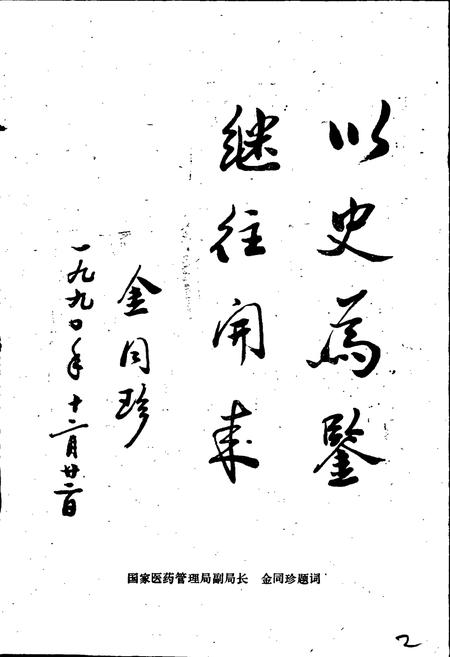 以史為鑒
继往开来
金同珍
一九九〇年十二月廿二日
国家医药管理局副局长 金同珍题词
2